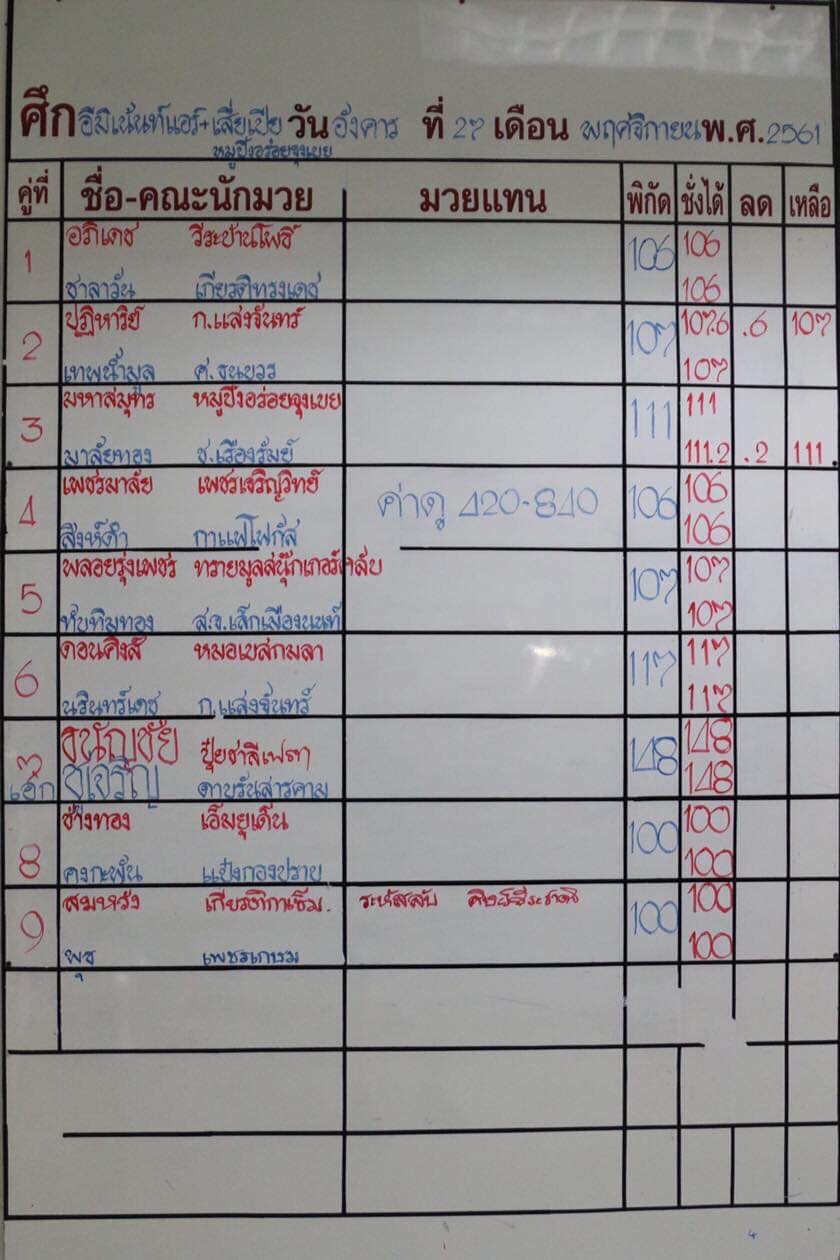 ศึก อีมิเน้นท์แอร์+เสี่ยเปีย วัน อังคาร ที่ 27 เดือน พฤศจิกายน พ.ศ. 2561
หมูปิ้งอร่อยจุงเบย
คู่ที่ ชื่อ-คณะนักมวย มวยแทน พิกัด ชั่งได้ ลด เหลือ
1 อภิเดช วีระป่านโพธิ์ 106 106
ชาลาวัน เกียรติทรงเดช 106
2 ปฏิหาริย์ ก.แสงจันทร์ 107 107.6 .6 107
เทพน้ำมูล ศ.ธนบวร 107
3 มหาสมุทร หมูปิ้งอร่อยจุงเบย 111 111
มาลัยทอง ช.เรืองรัมย์ 111.2 .2 111
4 เพชรมาลัย เพชรเจริญวิทย์ ค่าดู 420-840 106 106
สิงห์ดำ กาแฟโฟกัส 106
5 พลอยรุ่งเพชร ทรายมูลสนุ๊กเกอร์คลับ 107 107
ทับทิมทอง ส.จ.เล็กเมืองนนท์ 107
6 ดอนคิงส์ หมอเบสกมลา 117 117
นรินทร์เดช ก.แสงจันทร์ 117
7 ธนัญชัย ปุ๋ยชาลีเฟรท 148 148
เอก ชูเจริญ ดาบรันสารคาม 148
8 ช้างทอง เอ็มยูเด็น 100 100
คงกะพัน แป๋งกองปราบ 100
9 สมหวัง 100 100
พุช เพชรเกษม 100